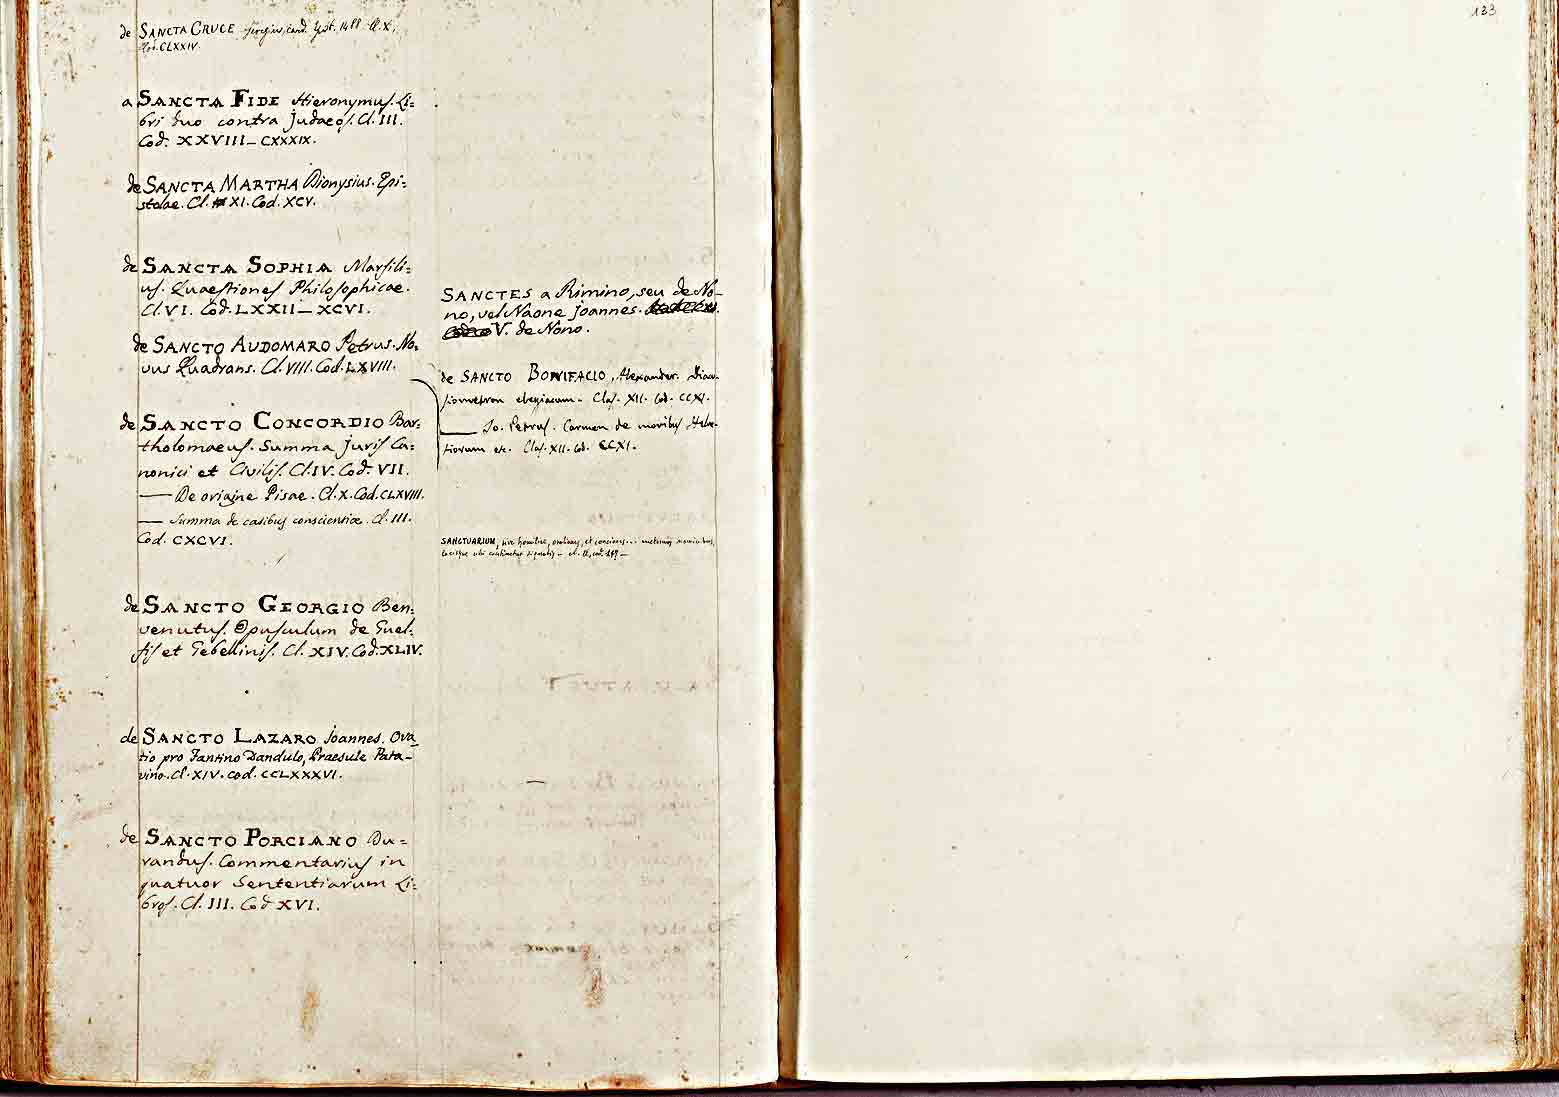 de SANCTA CRUCE card. Cl. X,
Cod. CLXXIV.
a SANCTA FIDE Hieronymus. Li=
bri duo contra Judaeos. Cl. III.
Cod. XXVIII–CXXXIX.
de SANCTA MARTHA Dionysius. Epi=
stolae. Cl. XI. Cod. XCV.
de SANCTA SOPHIA Marsili=
us. Quaestiones Philosophicae.
Cl. VI. Cod. LXXII–XCVI.
de SANCTO AUDOMARO Petrus. No=
vus Quadrans. Cl. VIII. Cod. LXVIII.
de SANCTO CONCORDIO Bar=
tholomaeus. Summa juris Ca=
nonici et Civilis. Cl. IV. Cod. VII.
— De origine Pisae. Cl. X. Cod. CLXVIII.
— Summa de casibus conscientiae. Cl. III.
Cod. CXCVI.
de SANCTO GEORGIO Ben=
venutus. Opusculum de Guel=
fis et Gebellinis. Cl. XIV. Cod. XLIV.
de SANCTO LAZARO Joannes. Ora_
tio pro Fantino Dandulo, Praesule Pata–
vino. Cl. XIV. cod. CCLXXXVI.
de SANCTO PORCIANO Du=
randus. Commentarius in
quatuor Sententiarum Li=
bros. Cl. III. Cod XVI.
SANCTES a Rimino, seu de No–
no, vel Naone Joannes.
V. de Nono.
de SANCTO BONIFACIO, Alexander.
elegiacum. Clas. XII. Cod. CCXI.
— Jo. Petrus. Carmen de moribus Helve–
tiorum etc. Clas. XII. Cod. CCXI.
SANCTUARIUM, sive homiliae, et nominibus,
123